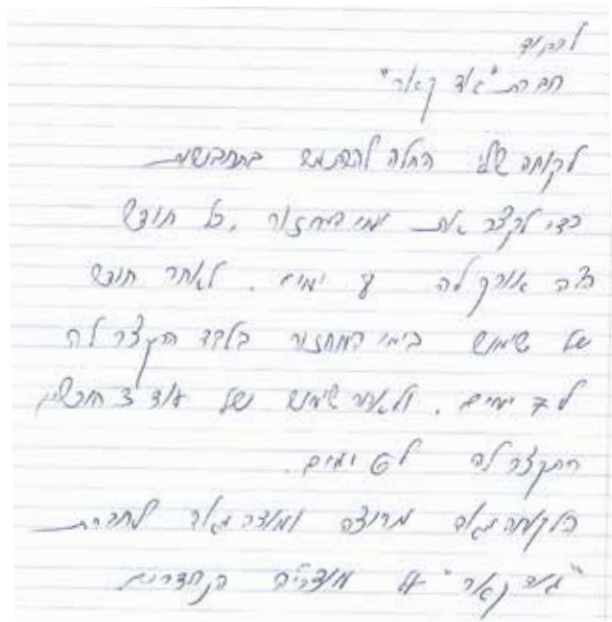 לכבוד
חברת "גוד קאר"
לקוחה שלי החלה להשתמש בתחבושת
כדי לקצר את ימי המחזור. כל חודש
היה אורך לה 8 ימים. לאחר חודש
של שימוש בימי המחזור בלבד התקצר לה
ל 7 ימים. ולאחר שימוש של עוד 3 חודשים
התקצר לה ל 6 ימים.
הלקוחה מאוד מרוצה ומודה מאוד לחברת
"גוד קאר" על מוצרים נהדרים